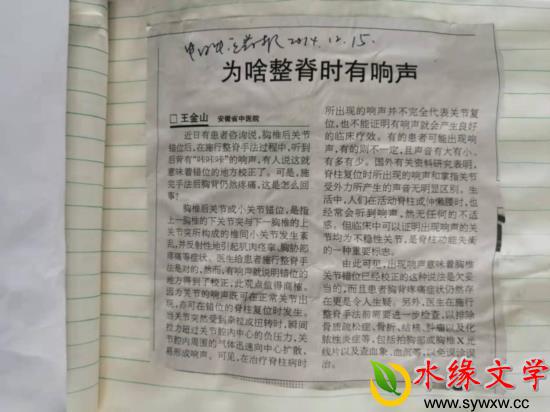 中国中医药报 2014.12.15.
为啥整脊时有响声
□王金山 安徽省中医院
近日有患者咨询说,胸椎后关节
错位后,在施行整脊手法过程中,听到
后背有“咔咔咔”的响声,有人说这就
意味着错位的地方校正了。可是,施
完手法后胸背仍然疼痛,这是怎么回
事?
胸椎后关节或小关节错位,是指
上一胸椎的下关节突与下一胸椎的上
关节突所构成的椎间小关节发生紊
乱,并反射性地引起肌肉痉挛、胸胁部
疼痛等症状。医生给患者施行整脊手
法是对的,然而,有响声就说明错位的
地方得到了校正,此观点值得商榷。
因为关节的响声既可在正常关节出
现,亦可在错位的脊柱复位时发生。
当关节突然受到牵拉或扭转时,瞬间
拉力超过关节腔内中心的负压力,关
节腔内周围的气体迅速向中心扩散,
易形成响声。可见,在治疗脊柱病时
所出现的响声并不完全代表关节复
位,也不能证明有响声就会产生良好
的临床疗效。有的患者可能出现响
声,有的则不一定,且声音有大有小、
有多有少。国外有关资料研究表明,
脊柱复位时所出现的响声和掌指关节
受外力所产生的声音无明显区别。生
活中,人们在活动脊柱或伸懒腰时,也
经常会听到响声,然无任何的不适
感。但临床中可以证明出现响声的关
节均为不稳定关节,是脊柱功能失衡
的一种重要标志。
由此可见,出现响声意味着胸椎
关节错位已经校正的这种说法是欠妥
当的,而且患者胸背疼痛症状仍然存
在更是令人生疑。另外,医生在施行
整脊手法前需要进一步检查,以排除
骨质疏松症、骨折、结核、肿瘤以及化
脓性炎症等,包括拍胸部或胸椎X光
线片以及查血象、血沉等,以免误诊误
治。
水缘文学
www.sywxw.cc